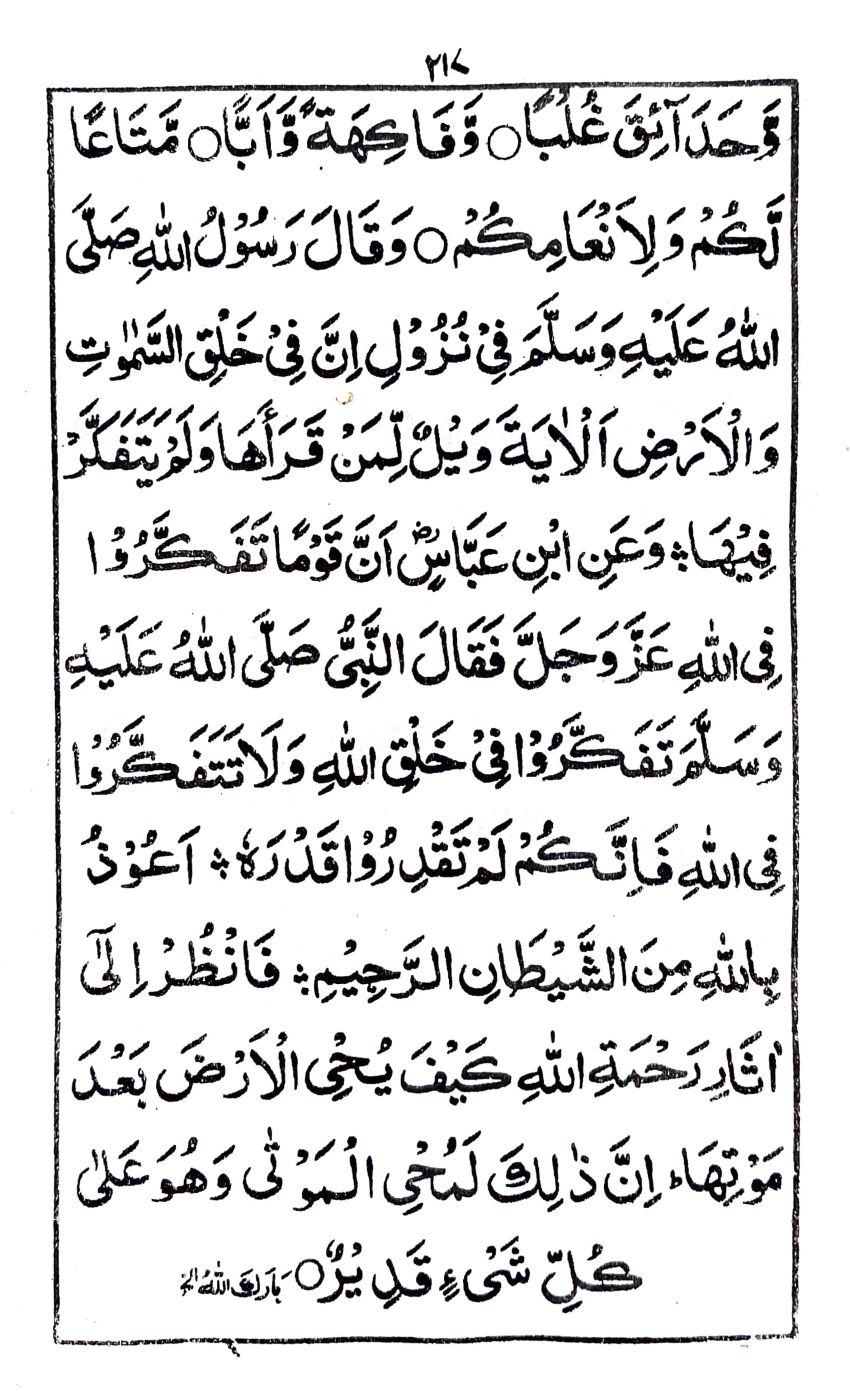 ۲۱۷
وَّحَدَآئِقَ غُلْبًا ○ وَّفَاكِهَةً وَّاَبًّا ○ مَّتَاعًا
لَّكُمْ وَلِاَنْعَامِكُمْ ○ وَقَالَ رَسُوْلُ اللّٰهِ صَلَّى
اللّٰهُ عَلَيْهِ وَسَلَّمَ فِيْ نُزُوْلِ اِنَّ فِيْ خَلْقِ السَّمٰوٰتِ
وَالْاَرْضِ اَلْاٰيَةَ وَيْلٌ لِّمَنْ قَرَأَهَا وَلَمْ يَتَفَكَّرْ
فِيْهَا ؞ وَعَنِ ابْنِ عَبَّاسٍؓ اَنَّ قَوْمًا تَفَكَّرُوْا
فِى اللّٰهِ عَزَّ وَجَلَّ فَقَالَ النَّبِىُّ صَلَّى اللّٰهُ عَلَيْهِ
وَسَلَّمَ تَفَكَّرُوْا فِيْ خَلْقِ اللّٰهِ وَلَا تَتَفَكَّرُوْا
فِى اللّٰهِ فَاِنَّكُمْ لَمْ تَقْدِرُوْا قَدْرَهٗ ؞ اَعُوْذُ
بِاللّٰهِ مِنَ الشَّيْطَانِ الرَّجِيْمِ ؞ فَانْظُرْ اِلٰٓى
اٰثَارِ رَحْمَةِ اللّٰهِ كَيْفَ يُحْىِ الْاَرْضَ بَعْدَ
مَوْتِهَا ؕ اِنَّ ذٰلِكَ لَمُحْىِ الْمَوْتٰى وَهُوَ عَلٰى
كُلِّ شَىْءٍ قَدِيْرٌ ○ بَارَكَ اللّٰهُ الخ